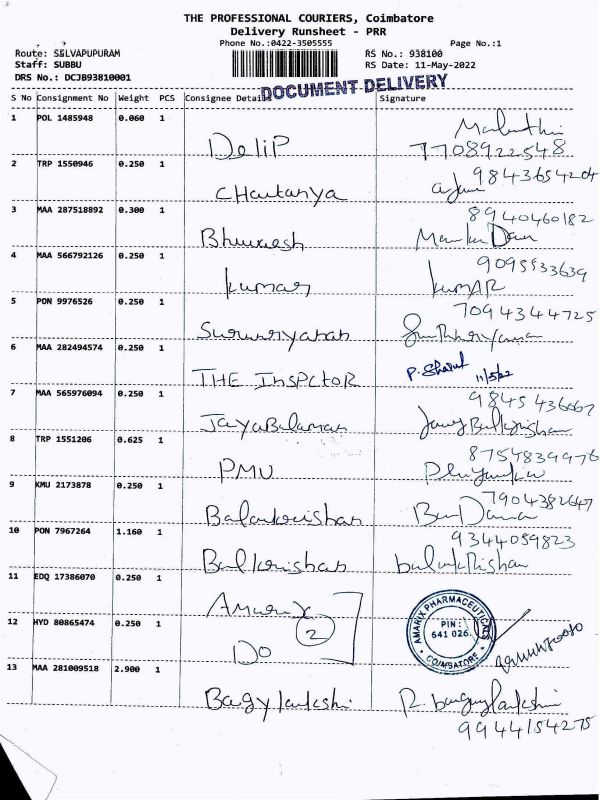 THE PROFESSIONAL COURIERS, Coimbatore
Delivery Runsheet - PRR
Phone No.:0422-3505555 Page No.:1
Route: SELVAPUPURAM RS No.: 938100
Staff: SUBBU RS Date: 11-May-2022
DRS No.: DCJB93810001
DOCUMENT DELIVERY
S No Consignment No Weight PCS Consignee Details Signature
1 POL 1485948 0.060 1
Delip 7708922548
2 TRP 1550946 0.250 1 9843654204
Chaitanya
3 MAA 287518892 0.300 1 8940460182
Bhuvaesh
4 MAA 566792126 0.250 1 9095533639
kumar kumAR
5 PON 9976526 0.250 1 7094344725
6 MAA 282494574 0.250 1
THE InSPCtOR 11/5/22
7 MAA 565976094 0.250 1
JayaBalaman
8 TRP 1551206 0.625 1 8754839976
PMU
9 KMU 2173878 0.250 1 7904382647
Balankrishan
10 PON 7967264 1.160 1 9344059823
Balkrishan balakRishan
11 EDQ 17386070 0.250 1
Amarix
12 HYD 80865474 0.250 1
2
Do
AMARIX PHARMACEUTICALS
PIN:
641 026.
COIMBATORE
13 MAA 281009518 2.900 1
Bagylakshi
9944154275